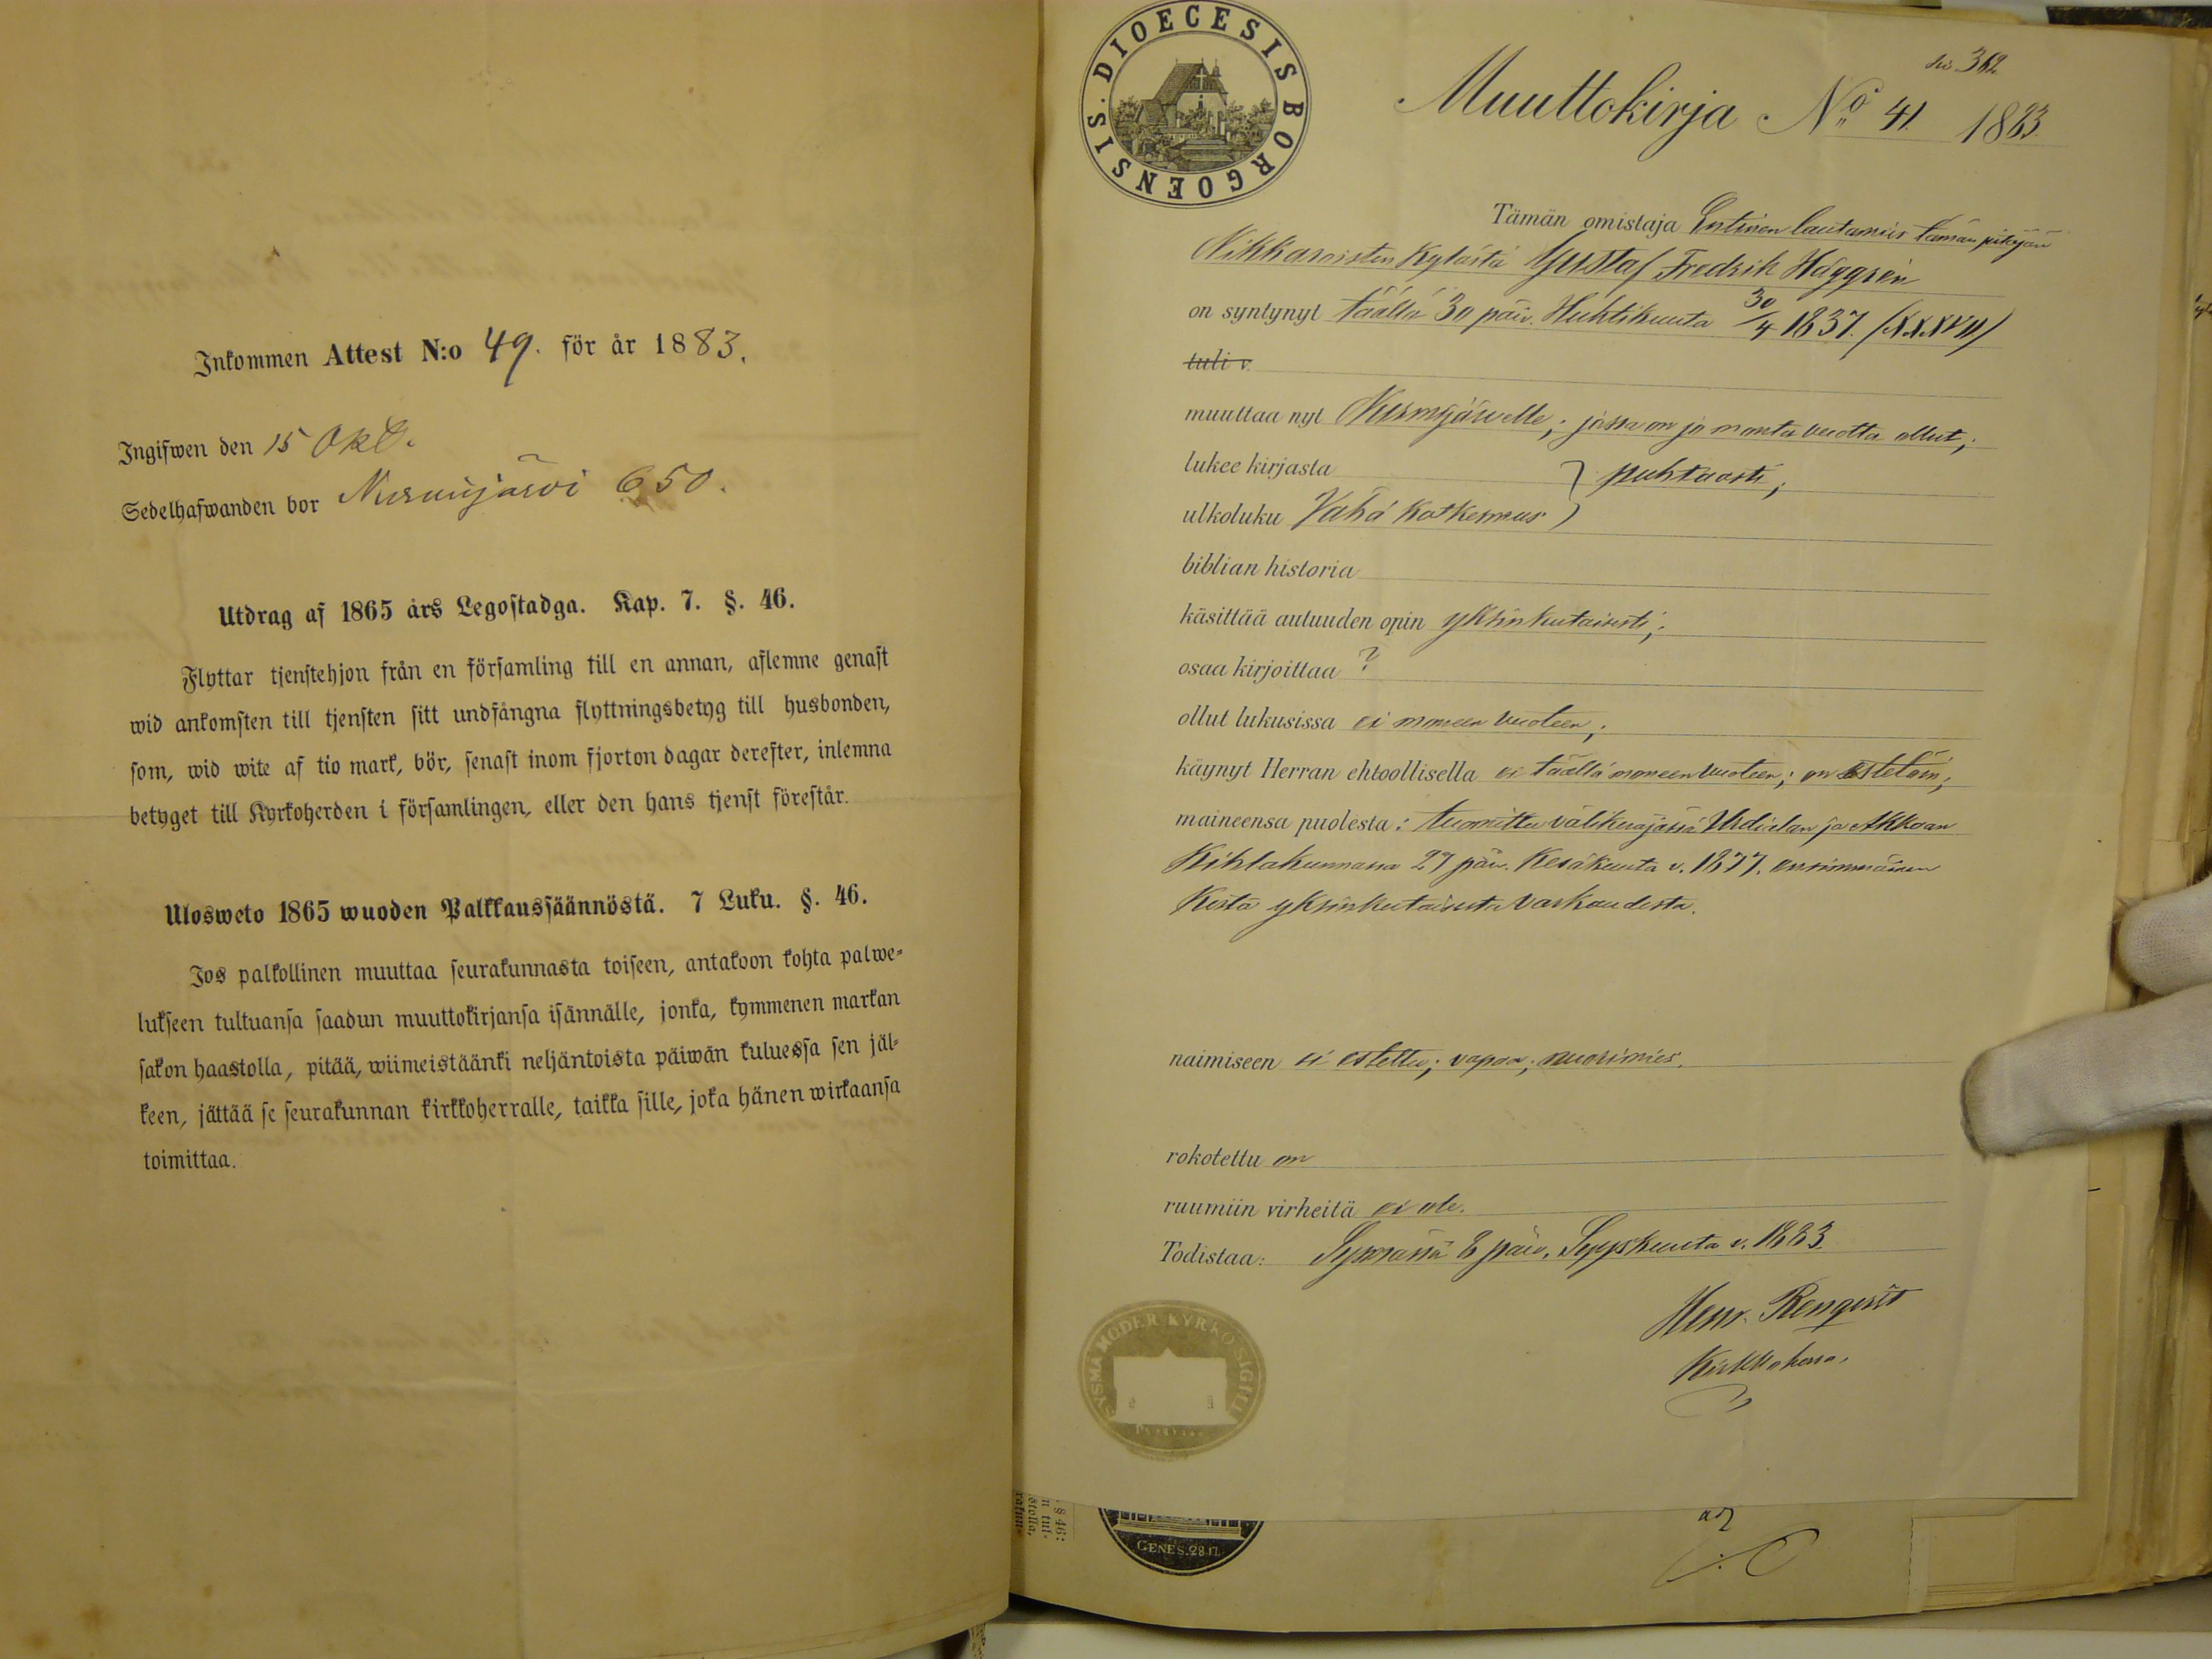 Inkommen Attest N:o 49. för år 1883.
Ingifwen den 15 Okt.
Sedelhafwanden bor Nurmijärvi 650.
Utdrag af 1865 års Legostadga. Kap. 7. §. 46.
Flyttar tjenstehjon från en församling till en annan, aflemne genast
wid ankomsten till tjensten sitt undfångna flyttningsbetyg till husbonden,
som, wid wite af tio mark, bör, senast inom fjorton dagar derefter, inlemna
betyget till Kyrkoherden i församlingen, eller den hans tjenst förestår.
Ulosweto 1865 wuoden Palkkaussäännöstä. 7 Luku. §. 46.
Jos palkollinen muuttaa seurakunnasta toiseen, antakoon kohta palwe-
lukseen tultuansa saadun muuttokirjansa isännälle, jonka, kymmenen markan
sakon haastolla, pitää, wiimeistäänki neljäntoista päiwän kuluessa sen jäl-
keen, jättää se seurakunnan kirkkoherralle, taikka sille, joka hänen wirkaansa
toimittaa.
DIOECESIS BORGOENSIS.
362
Muuttokirja No 41. 1883.
Tämän omistaja Entinen lautamies tämän pitäjän
Nikkaroisten kylästä Gustaf Fredrik Häggrén
on syntynyt täällä 30 päiv. Huhtikuuta 30/4 1837. (XXXVII)
tuli v.
muuttaa nyt Nurmijärvelle; jossa on jo monta vuotta ollut;
lukee kirjasta } puhtaasti;
ulkoluku Vähä Katkesmus }
biblian historia
käsittää autuuden opin yksinkertaisesti;
osaa kirjoittaa ?
ollut lukusissa ei moneen vuoteen;
käynyt Herran ehtoollisella ei täällä moneen vuoteen; on estetöin;
maineensa puolesta: tuomittu välikäräjässä Urdialan ja Akkaan
Kihlakunnassa 27 päiv. Kesäkuuta v. 1877. ensimmäinen
Kerta yksinkertaisesta varkaudesta.
naimiseen ei estettu; vapaa; nuorimies.
rokotettu on
ruumiin virheitä ei ole.
Todistaa: Sysmässä 8 päiv. Syyskuuta v. 1883.
Henr. Renqvist
Kirkkoherra.
SYSMÄ MODER KYRKO SIGILL
GENES. 28.17.